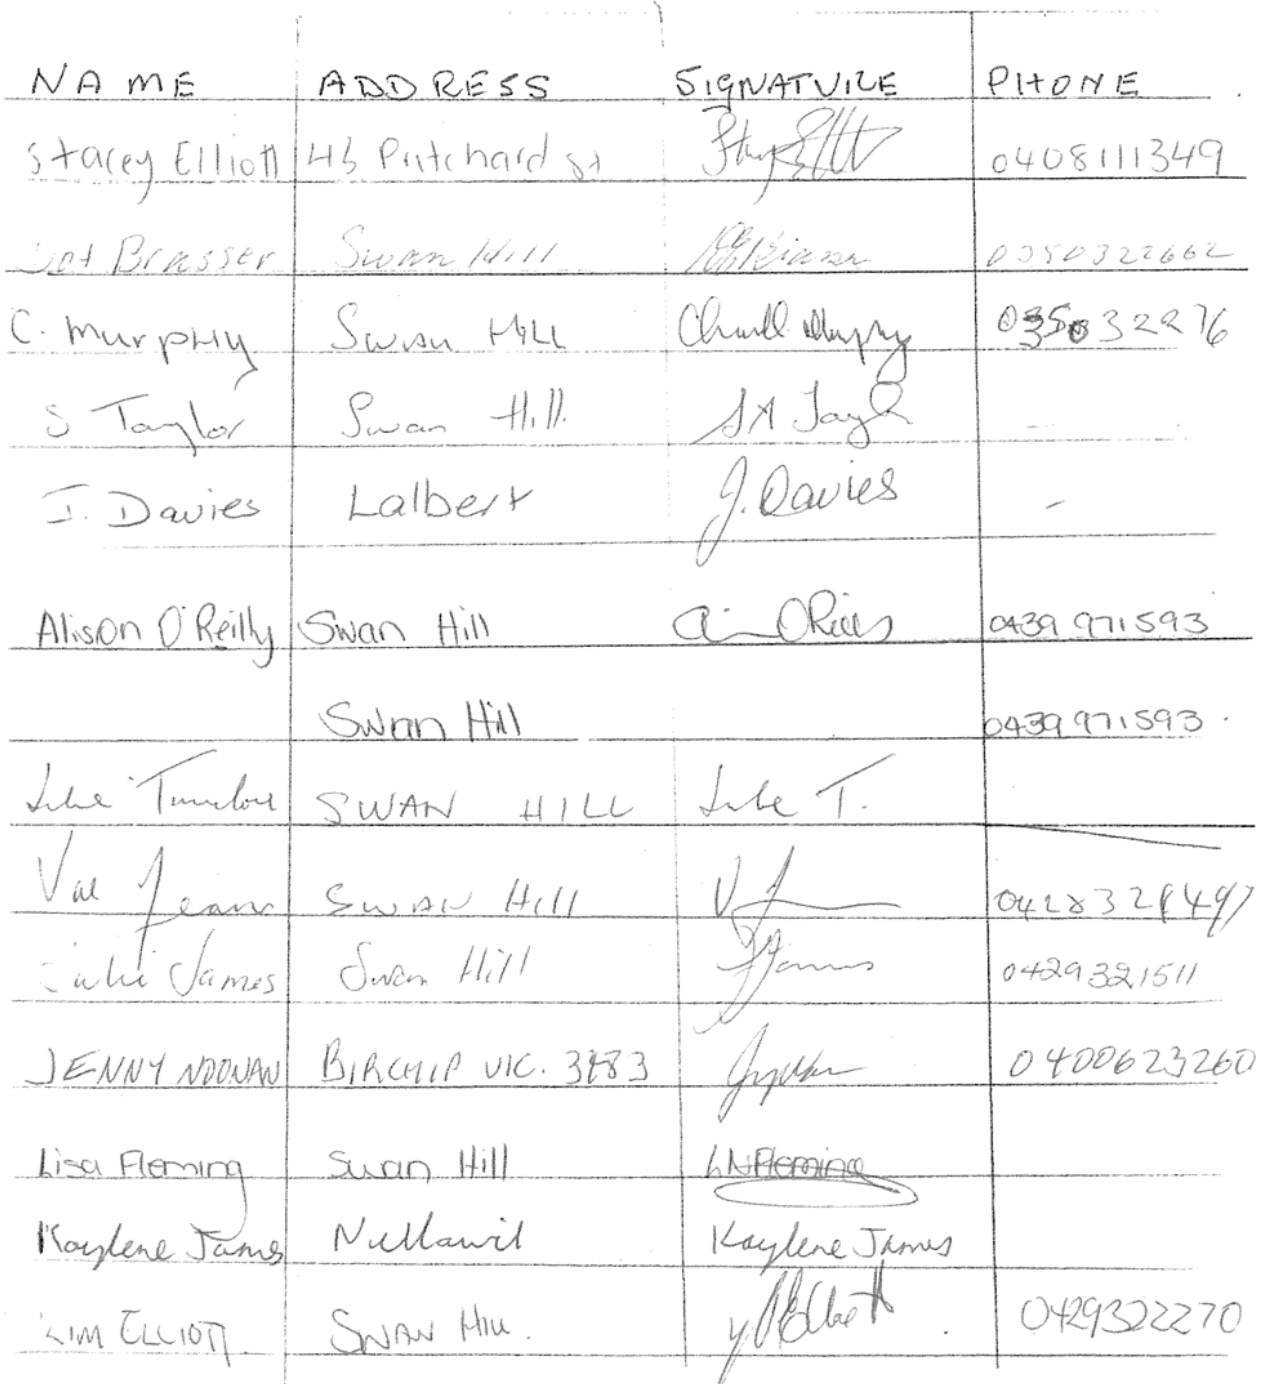 NAME ADDRESS SIGNATURE PHONE
Stacey Elliott 45 Pritchard st 0408111349
Dot Brasser Swan Hill 0350322662
C. Murphy Swan Hill 035032276
S Taylor Swan Hill. S A Taylor -
J. Davies Lalbert J. Davies -
Alison O'Reilly Swan Hill 0439 971593
Swan Hill 0439 971593.
Luke SWAN HILL Luke T.
Val Swan Hill
Julie James Swan Hill J James 0429321511
JENNY NOONAN BIRCHIP VIC. 3483 0400623260
Lisa Fleming Swan Hill LN Fleming
Kaylene James Nullawil Kaylene James
KIM ELLIOTT SWAN HILL. 0429322270